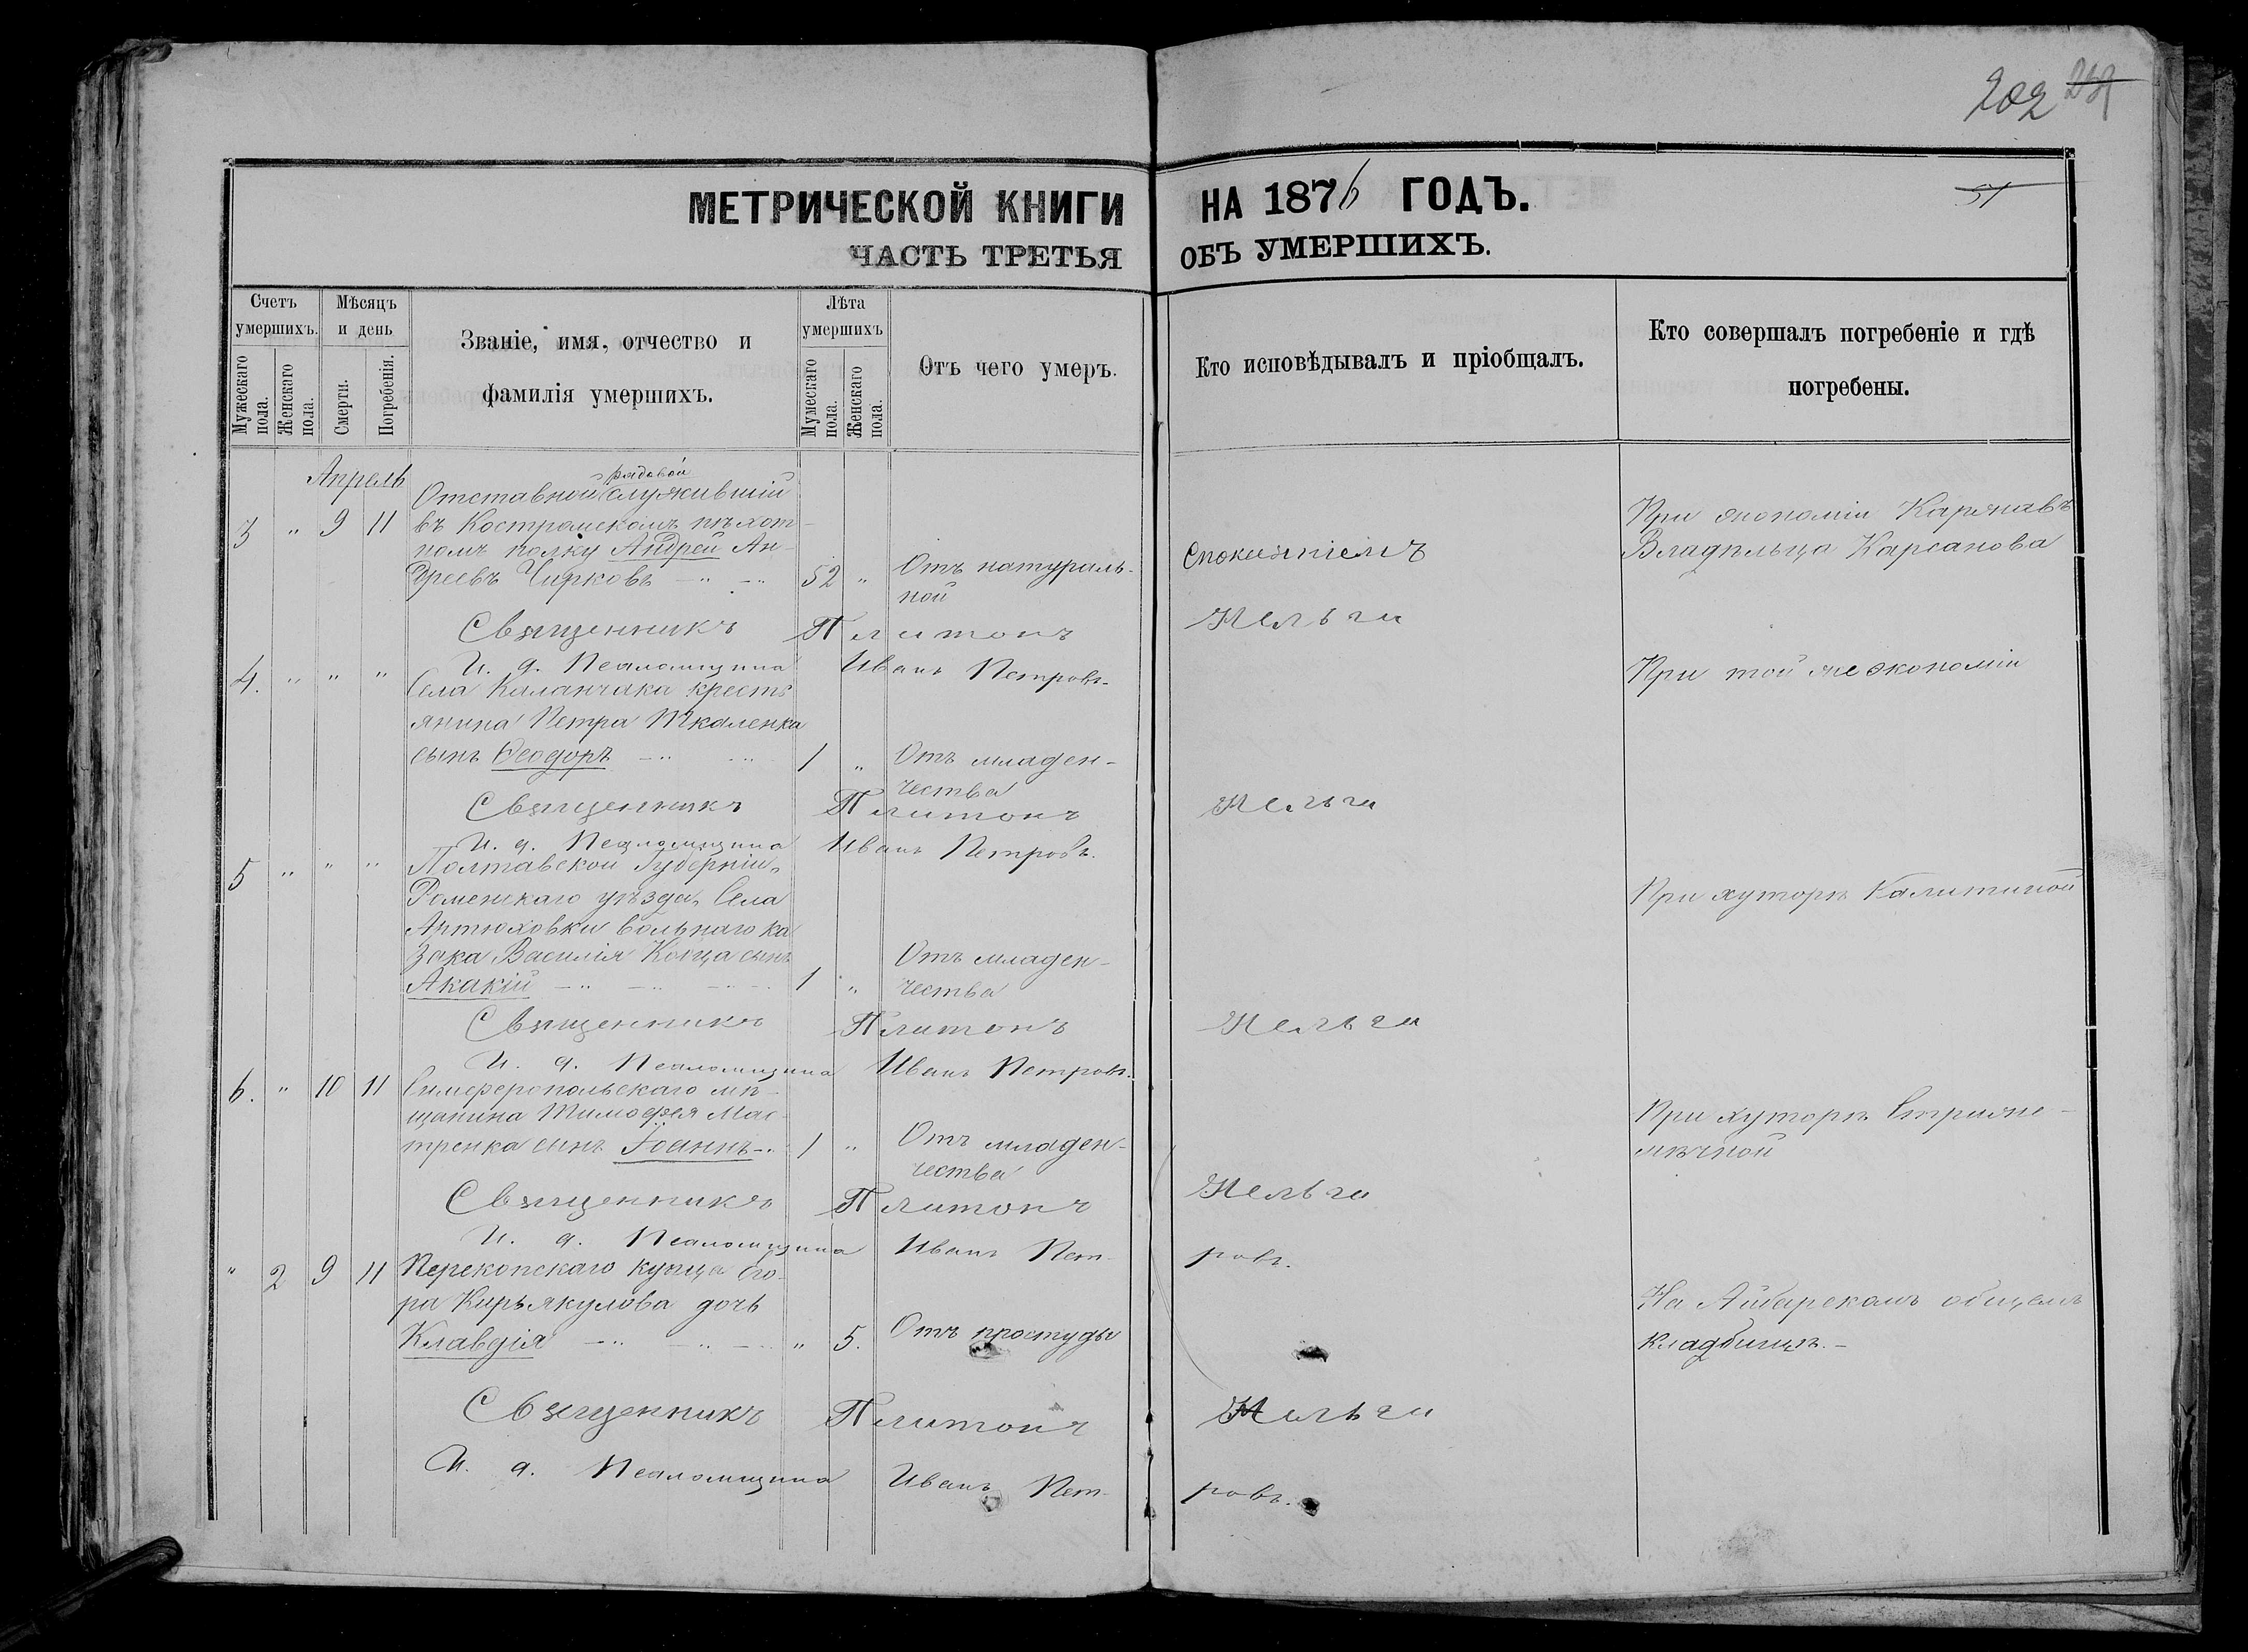 202
МЕТРИЧЕСКОЙ КНИГИ НА 1876 ГОДЪ.
51
ЧАСТЬ ТРЕТЬЯ ОБЪ УМЕРШИХЪ.
Счетъ умершихъ.
Мужескаго пола.
Женскаго пола.
Мѣсяцъ и день
Смерти.
Погребенія.
Званіе, имя, отчество и
фамилія умершихъ.
Лѣта умершихъ
Мужескаго пола.
Женскаго пола.
Отъ чего умеръ.
Кто исповѣдывалъ и пріобщалъ.
Кто совершалъ погребеніе и гдѣ
погребены.
Апрель
рядовой
Отставной служившій
3 " 9 11 въ Костромскомъ пѣхот-
номъ полку Андрей Ан-
дреевъ Чирковъ 52 " Отъ натураль-
ной
При экономіи
Владѣльца Карсанова
Священникъ Платонъ
И. д. Псаломщика Иванъ Петровъ.
4. " " " Села Каланчака кресть
янина Петра Ткаленка
сынъ Ѳеодоръ 1 " Отъ младен-
чества
При той же экономіи
Священникъ Платонъ
И. д. Псаломщика Иванъ Петровъ.
5 " " " Полтавской Губерніи,
Роменскаго уѣзда, Села
Артюховки вольнаго ка
зака Василія сынъ
Акакій 1 " Отъ младен-
чества
При хуторѣ Калитиной
Священникъ Платонъ
И. д. Псаломщика Иванъ Петровъ.
6. " 10 11 Симферопольскаго мѣ-
щанина Тимофея Мас-
тренка сынъ Іоаннъ 1 " Отъ младен-
чества
При хуторѣ
Священникъ Платонъ
И. д. Псаломщика Иванъ Пет- ровъ.
" 2 9 11 Перекопскаго купца Его-
ра Кирьякулова дочь
Клавдія " 5. Отъ простуды
На Айбарскомъ общемъ
кладбищѣ.
Священникъ Платонъ
И. д. Псаломщика Иванъ Пет- ровъ.